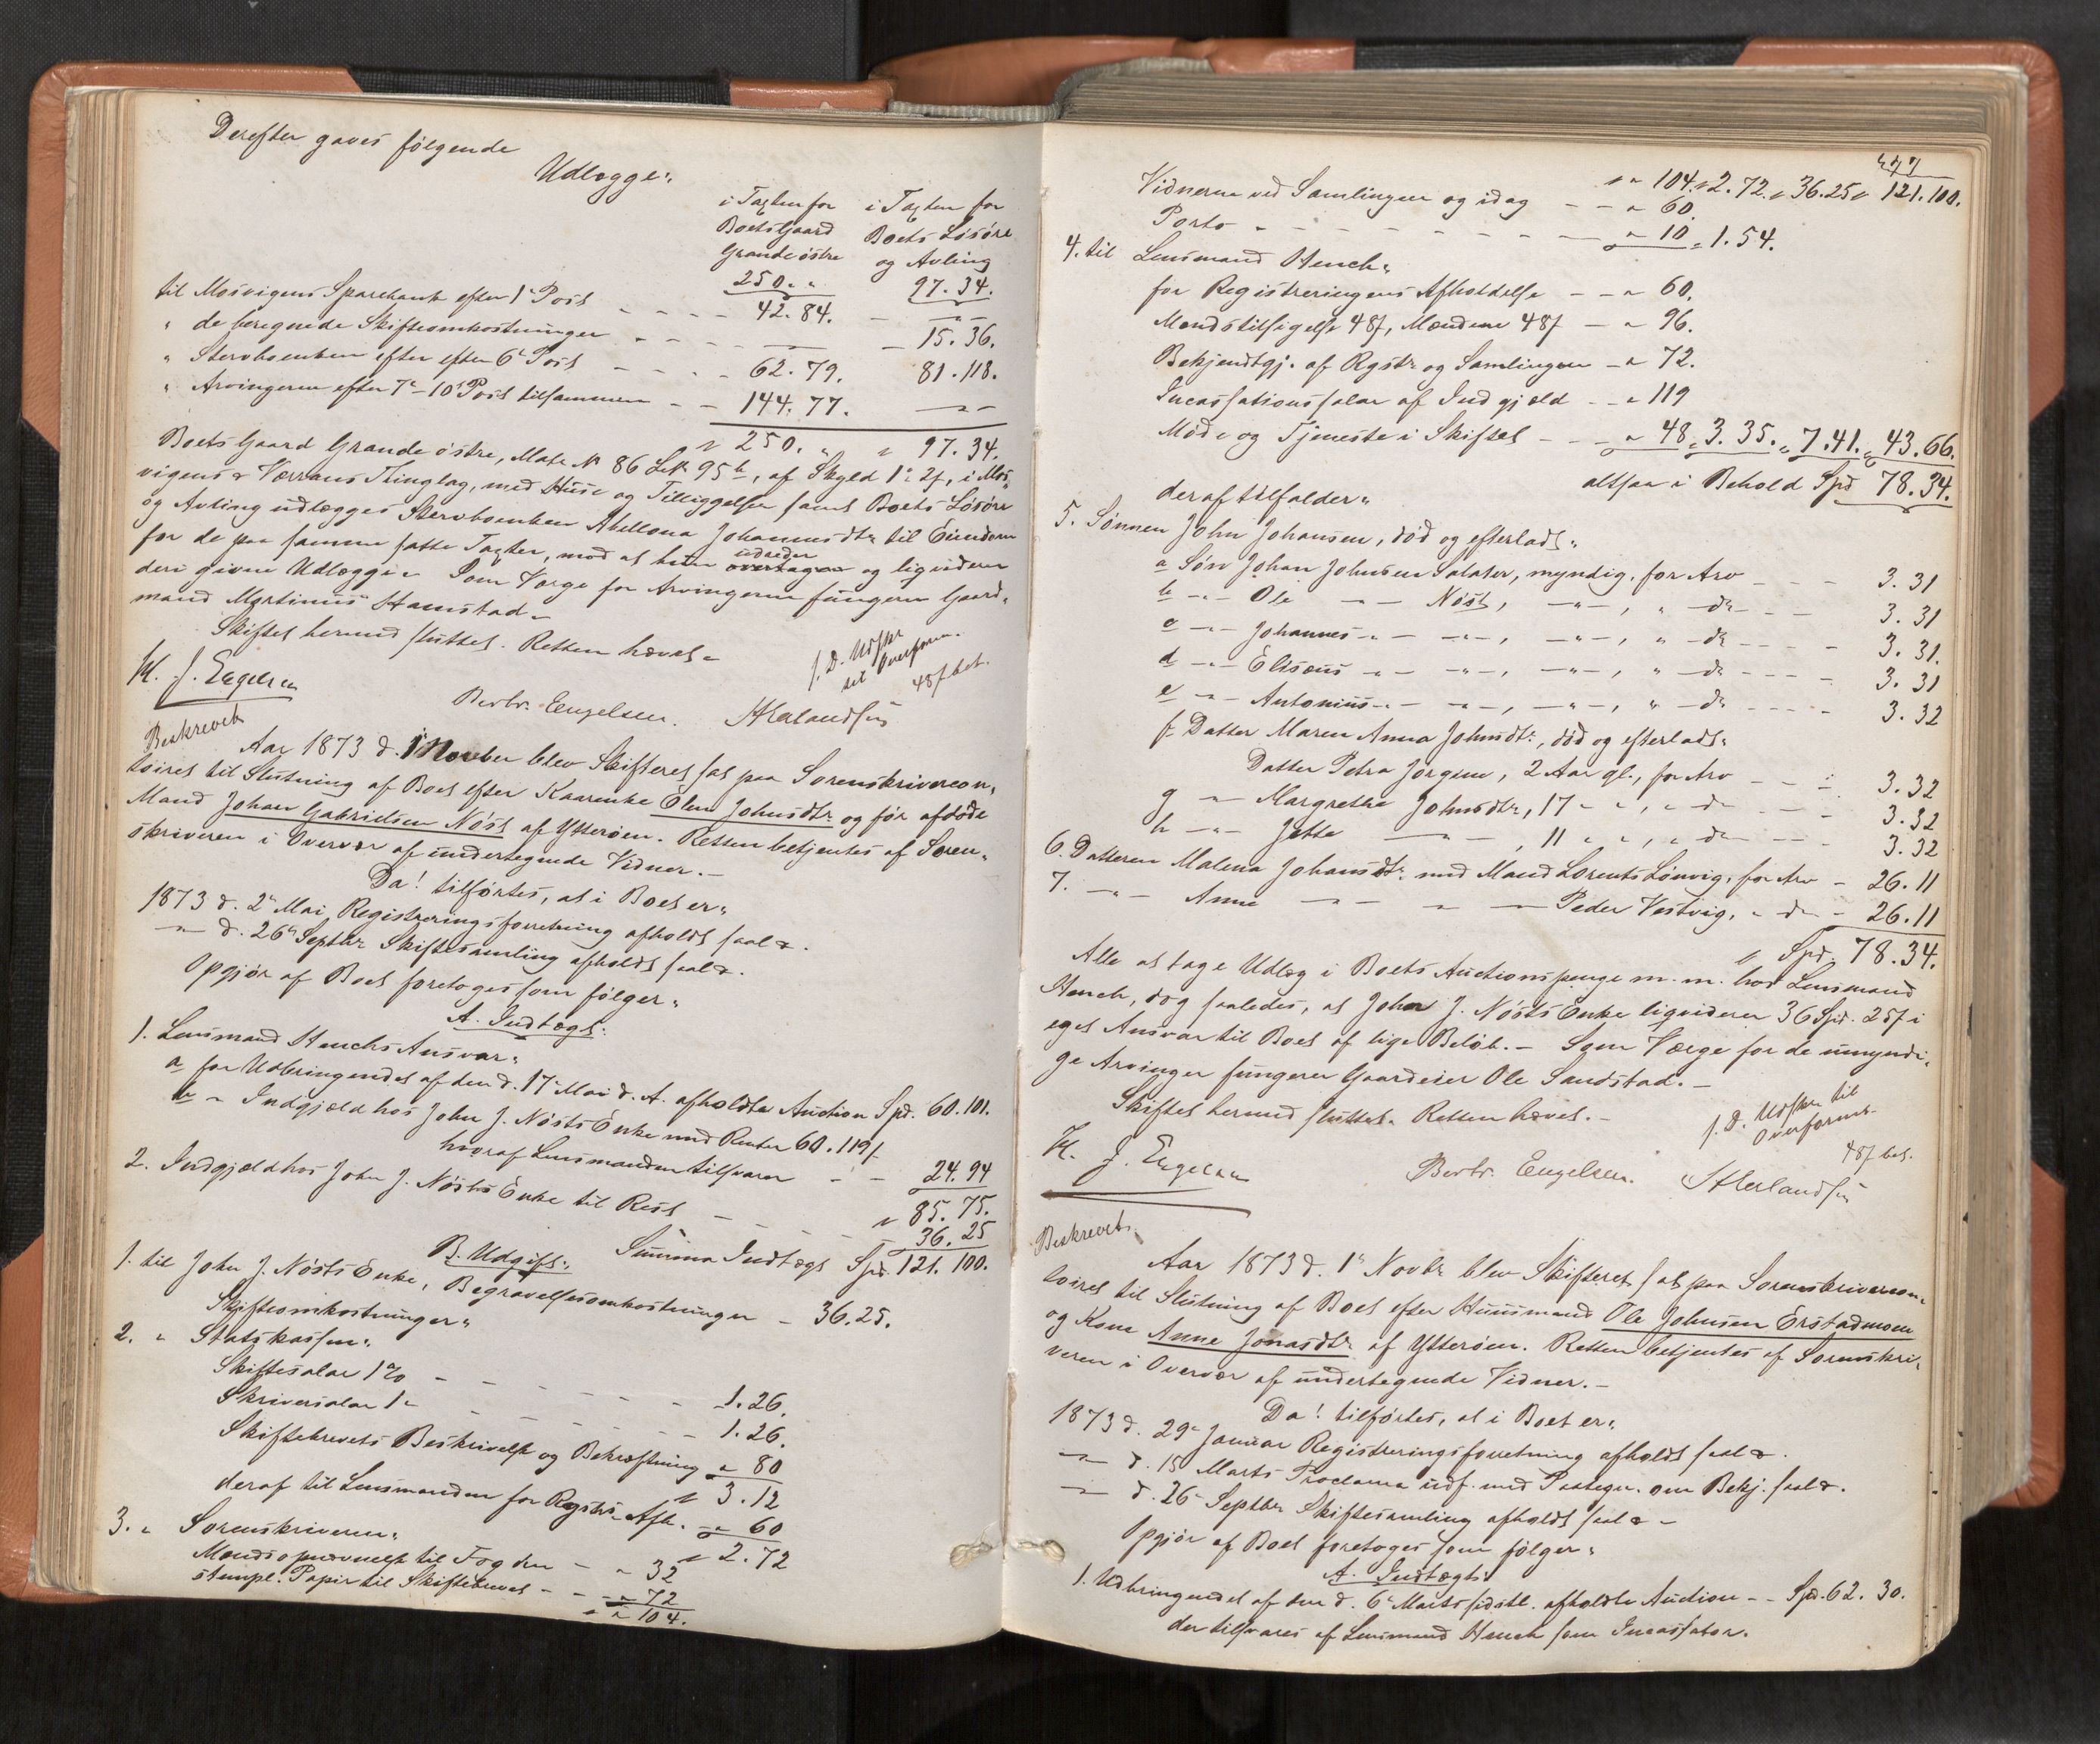 Derefter gaves følgende
Udlægge:
i Taxten for Boets Gaard Grande østre
i Taxten for Boets Løsøre og Avling
250. " 97. 34.
til Mosvigens Sparebank efter 1e Post - - - - 42. 84. - - " -
" de beregnede Skifteomkostninger - - - - — - 15. 36.
" Stervboenken efter efter 6e Post - - - - 62. 79. 81. 118.
" Arvingerne efter 7e - 10e Post tilsammen - - 144. 77. - " -
" 250. " " 97. 34.
Boets Gaard Grande østre, Matr. No 86 L.No 95b, af Skyld 1 " 2f, i Mos-
vigens & Værrans Thinglag, med Huse og Tilliggelser samt Boets Løsøre
og Avling udlægges Stervboenken Abellona Johannesdtr til Eiendom
for de paa samme satte Taxter, mod at hun udreder og ligviderer
deri givne Udlægge. Som Værge for Arvingerne fungerer Gaard-
mand Martinus Hamstad.
Skiftet hermed sluttet. Retten hævet.
f. D. Udskr
til Overform.
48f bet.
H. J. Engelsen
Berbr. Engelsen. Herlandsen
Beskrevet
Aar 1873 d. 1 Novber blev Skifteret sat paa Sorenskrivercon-
toiret til Slutning af Boet efter Kaarenke Olen Johnsdtr og før afdøde
Mand Johan Gabrielsen Nøst af Ytterøen. Retten betjentes af Soren-
skriveren i Overvær af undertegnede Vidner. -
Da! tilførtes, at i Boet er:
1873 d. 2e Mai Registreringsforretning afholdt saal.
- " - d. 26e Septbr Skiftesamling afholdt saal.
Opgjør af Boet foretoges som følger:
A. Indtægt:
1. Lensmand Henchs Ansvar:
a for Udbringendet af den d. 17e Mai d. A. afholdte Auction Spd. 60. 101.
b " Indgjæld hos John J. Nøsts Enke med Renter 60. 119f
hvoraf Lensmanden tilsvarer - - 24. 94
" 85. 75.
2. Indgjæld hos John J. Nøsts Enke til Rest - - - - 36. 25
Summa Indtægt Spd. 121. 100.
B. Udgift:
1. til John J. Nøsts Enke, Begravelsesomkostninger - 36. 25.
Skifteomkostninger:
2. " Statskassen:
Skiftesalar 1% - - - - - - - 1. 26.
Skriversalar 1 " - - - - - - 1. 26.
Skiftebrevets Beskrivelse og Bekræftning " 80
" 3. 12
deraf til Lensmanden for Registr. Afh. - " 60
" 2. 72
3. " Sorenskriveren:
Mændsopnævnelse til Fogden - " 32
stempl. Papir til Skiftebrevet - - " 72
" " 104.
477
" " 104. " 2. 72. " 36. 25 " 121. 100.
Vidnerne ved Samlingen og idag - - " 60.
Porto - - - - - - - - " 10 " 1. 54.
4. til Lensmand Hench:
for Registreringens Afholdelse - - " 60.
Mændstilsigelse 48f, Mændene 48f - " 96.
Bekjendtgj. af Rgstr. og Samlingen - " 72.
Incassationssalar af Indgjæld - - " 119
Møde og Tjeneste i Skiftet - - - " 48 " 3. 35. " 7. 41. " 43. 66.
altsaa i Behold Spd 78. 34.
deraf tilfalder:
5. Sønnen John Johansen, død og efterladt:
a Søn Johan Johnsen Salater, myndig, for Arv - - - 3. 31
b - " - Ole - " - Nøst, - " -, " - do - - - 3. 31
c - " - Johannes - " - - " -, - " -, " - do - - - 3. 31.
d - " - Elisæus - " - - " -, - " -, " - do - - - 3. 31
e - " - Antonius - " - - " -, - " -, " - do - - - 3. 32
f Datter Maren Anna Johnsdtr, død og efterladt:
Datter Petra Jørgine, 2 Aar gl., for Arv - - - 3. 32
g - " - Margrethe Johnsdtr, 17 " ", " do - - - 3. 32
h - " - Jette - " -, 11 " ", " do - - - 3. 32
6. Datteren Malena Johansdtr med Mand Lorents Lønvig, for Arv - 26. 11
7. - " - Anne - " - " - " - Peder Vestvig, " do - 26. 11
" Spd. 78. 34.
Alle at tage Udlæg i Boets Auctionspenge m. m. hos Lensmand
Hench, dog saaledes, at John J. Nøsts Enke ligviderer 36 Spd. 25f i
eget Ansvar til Boet af lige Beløb. - Som Værge for de umyndi-
ge Arvinger fungerer Gaardeier Ole Sandstad. -
Skiftet hermed sluttet. Retten hævet. -
f. D. Udskr til
Overform.
48f bet.
H. J. Engelsen
Berbr. Engelsen. Herlandsen
Beskrevet.
Aar 1873 d. 1e Novbr blev Skifteret sat paa Sorenskrivercon-
toiret til Slutning af Boet efter Huusmand Ole Johnsen Erstadmoen
og Kone Anne Jonasdtr af Ytterøen. Retten betjentes af Sorenskri-
veren i Overvær af undertegnede Vidner. -
Da! tilførtes, at i Boet er:
1873 d. 29e Januar Registreringsforretning afholdt saal.
- " - d. 15 Marts Proclama udf. med Paategn. om Bekj. saal.
- " - d. 26 Septbr Skiftesamling afholdt saal. -
Opgjør af Boet foretoges som følger:
A. Indtægt:
1. Udbringendet af den d. 6e Marts sidstl. afholdte Auction - - Spd. 62. 30.
der tilsvares af Lensmand Hench som Incassator.